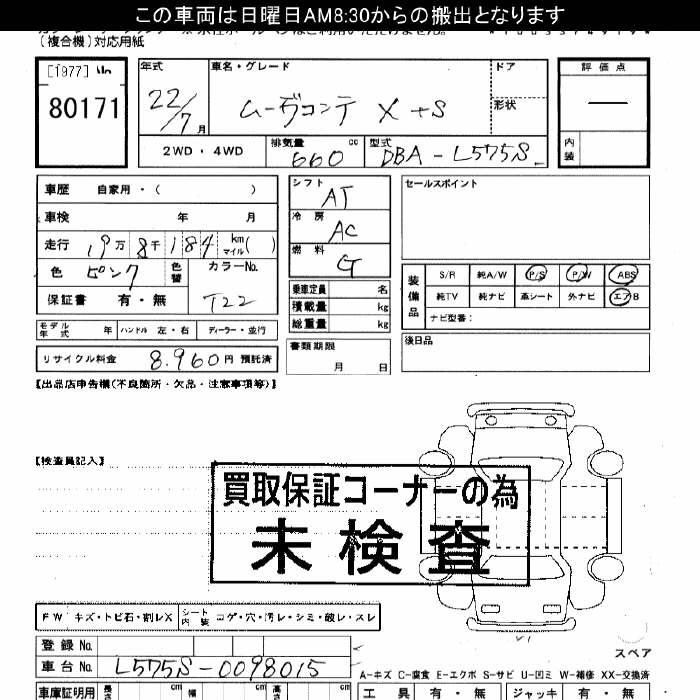 この車両は日曜日AM8:30からの搬出となります
(複合機)対応用紙
[1977] No
80171
年式
22/7月
車名・グレード
ムーヴコンテ X +S
ドア
形状
評価点
—
内装
2WD・4WD
排気量
660 cc
型式
DBA-L575S
車歴 自家用・( )
車検 年 月
走行 19万8千184 km マイル( )
色 ピンク
色替
カラーNo.
T22
保証書 有・無
モデル年式 年 ハンドル 左・右 ディーラー・並行
リサイクル料金 8.960円 預託済
シフト AT
冷房 AC
燃料 G
乗車定員 名
積載量 kg
総重量 kg
書類期限
月 日
セールスポイント
装備品
S/R 純A/W P/S P/W ABS
純TV 純ナビ 革シート 外ナビ エアB
ナビ型番:
後日品
【出品店申告欄(不良箇所・欠品・注意事項等)】
【検査員記入】
買取保証コーナーの為
未検査
FW キズ・トビ石・割レX
シート内装 コゲ・穴・汚レ・シミ・破レ・スレ
スペア
登録No.
車台No. L575S-0098015
A-キズ C-腐食 E-エクボ S-サビ U-凹ミ W-補修 XX-交換済
車庫証明用 長さ cm 幅 cm 高さ cm
工具 有・無 ジャッキ 有・無